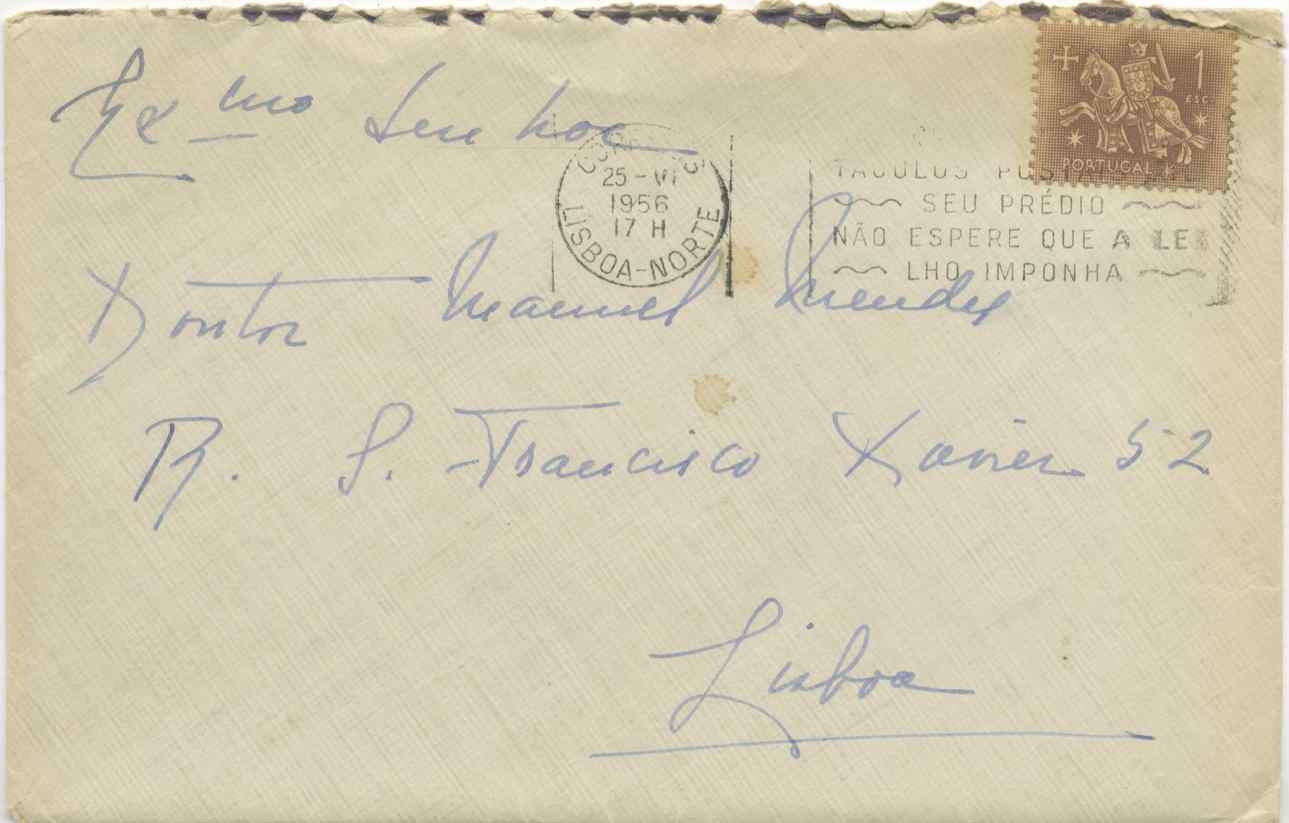 Exmo Senhor
Doutor Manuel Mendes
R. S. Francisco Xavier 52
Lisboa
CORREIOS
25-VI
1956
17 H
LISBOA-NORTE
SEU PRÉDIO
NÃO ESPERE QUE A LEI
LHO IMPONHA
1
ESC.
PORTUGAL